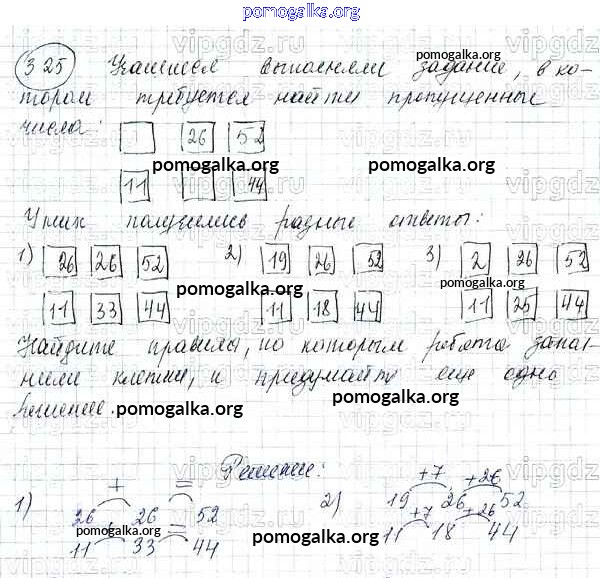 pomogalka.org
325 Учащиеся выполняли задание, в ко-
pomogalka.org
тором требуется найти пропущенные
числа: 26 52
pomogalka.org pomogalka.org
11 44
У них получились разные ответы:
1) 26 26 52 2) 19 26 52 3) 2 26 52
pomogalka.org pomogalka.org
11 33 44 11 18 44 11 25 44
Найдите правила, по которым ребята запол-
нили клетки, и придумайте еще одно
решение. pomogalka.org pomogalka.org
Решение:
+ = +7 +26
1) 26 26 52 2) 19 26 52
pomogalka.org
+ = +7 +26
11 33 44 11 18 44
pomogalka.org